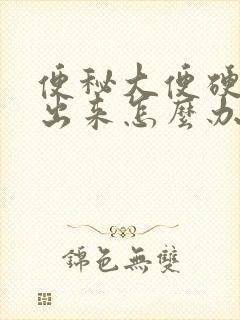 便秘大便硬
出来怎麼办
錦色無雙